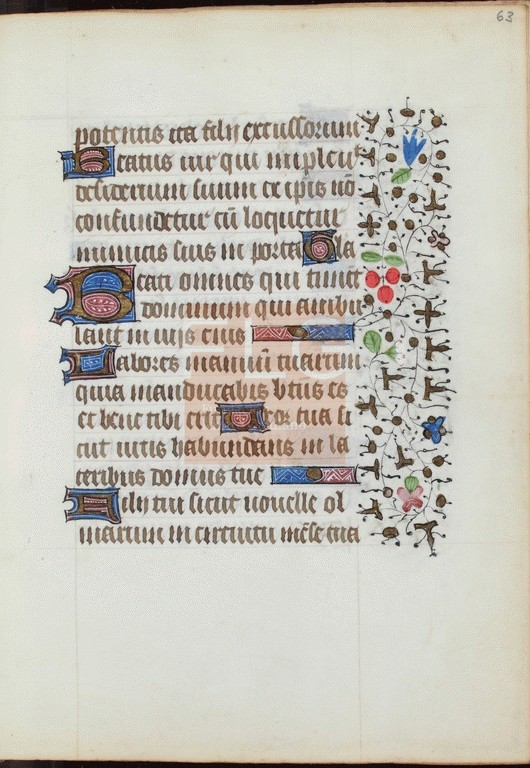 63
potentis ita filij excussorum
Beatus uir qui impleuit
desiderium suum ex ipis nō
confundetur cū loquetur
inimicis suis in porta Gla
Beati omnes qui timēt
dominum qui ambu
lant in uijs eius
Labores manuū tuarum
quia manducabis btus es
et bene tibi erit Uxor tua si
cut uitis habundans in la
teribus domus tue
Filij tui sicut nouelle ol
iuarum in circuitu mēse tua